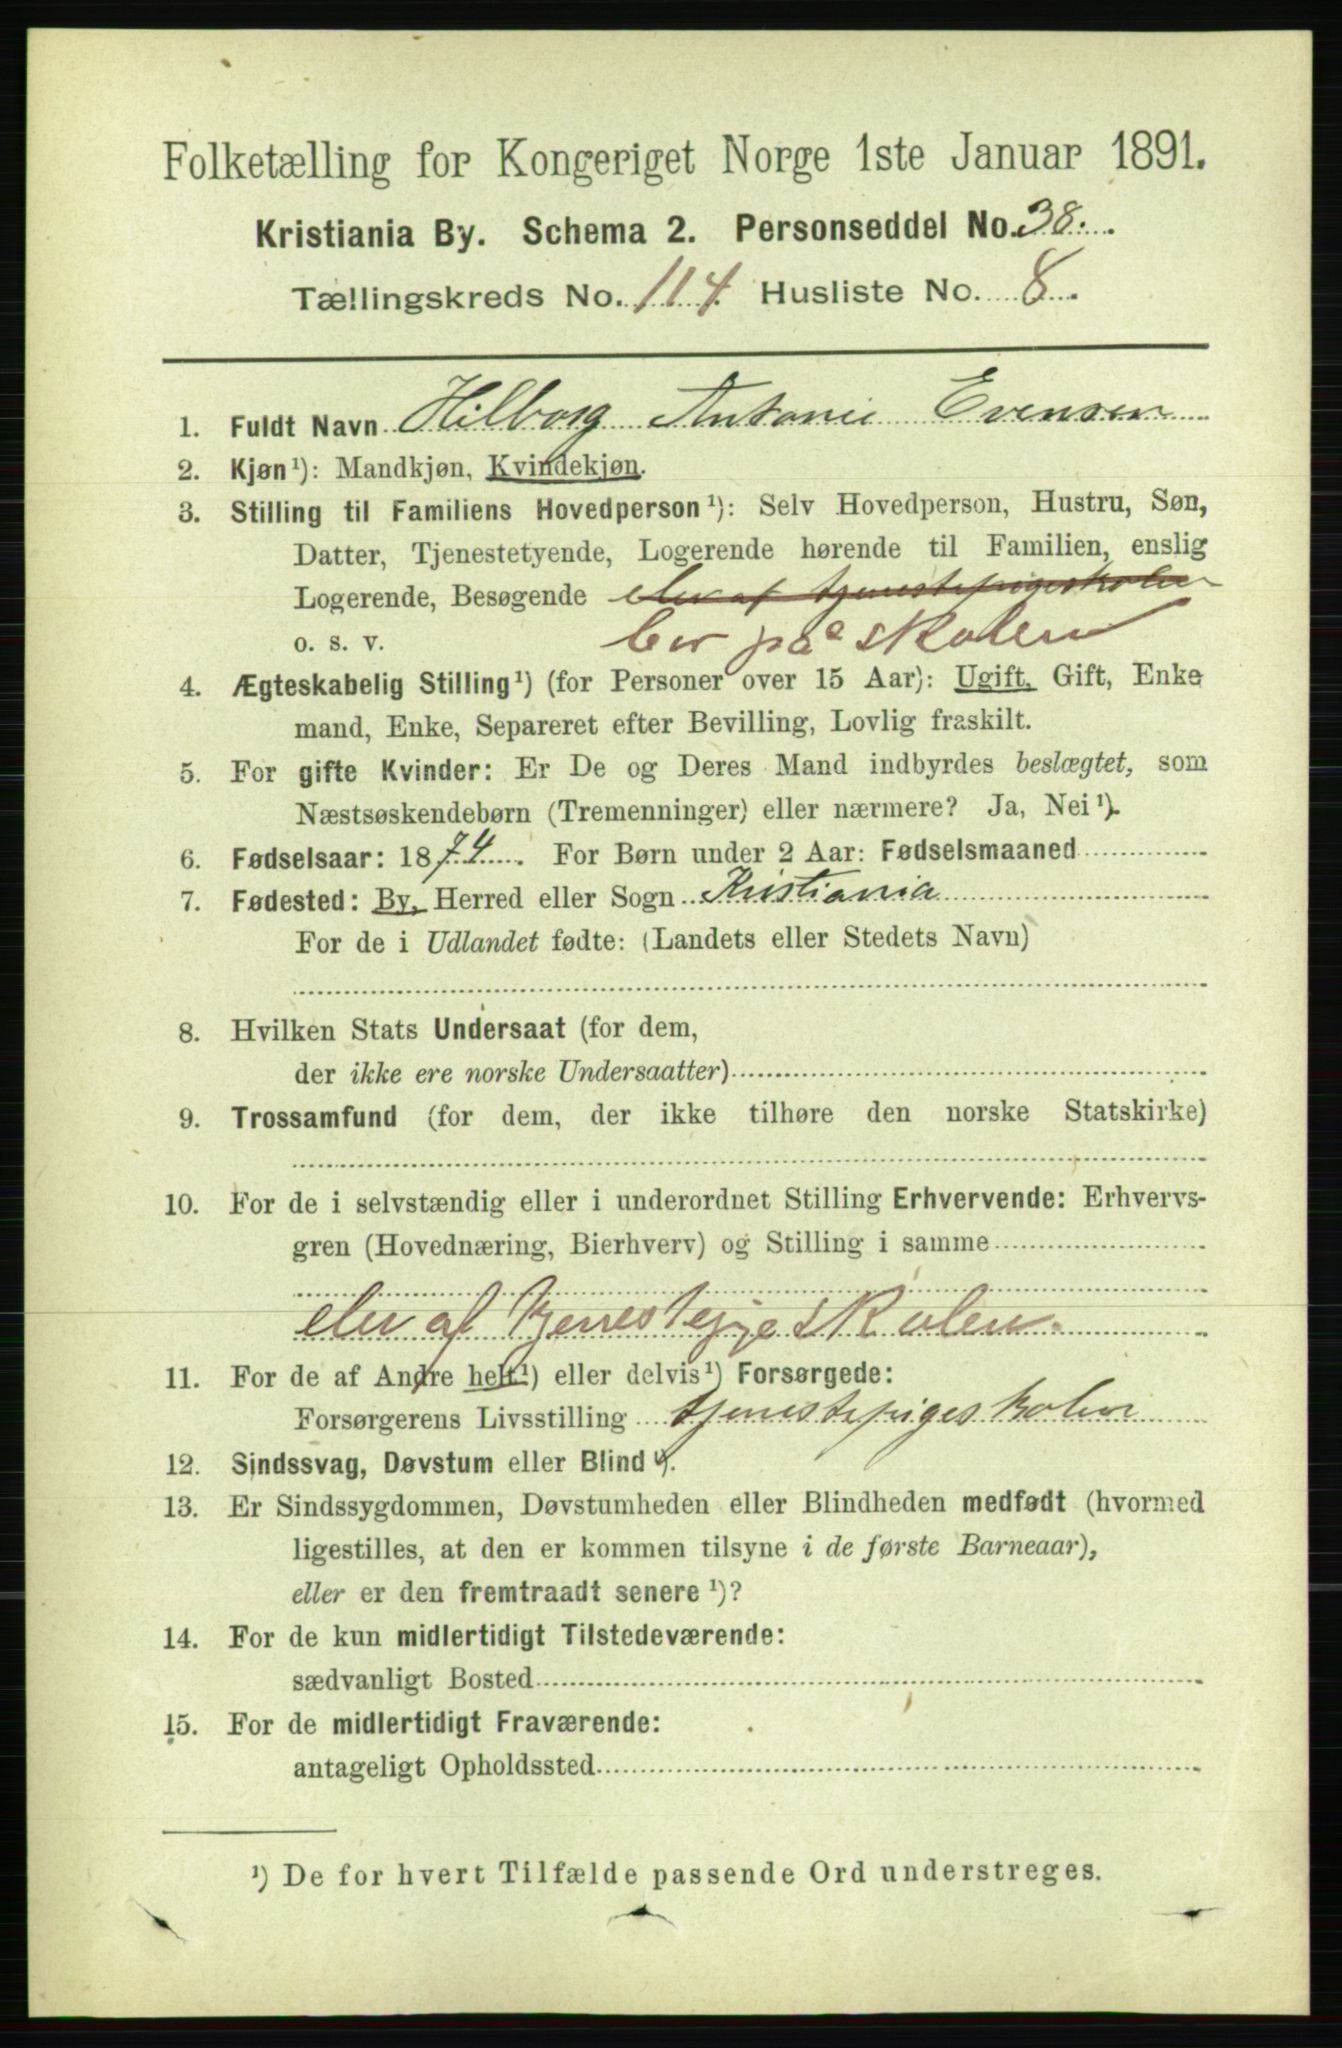 Folketælling for Kongeriget Norge 1ste Januar 1891.
Kristiania By. Schema 2. Personseddel No. 38.
Tællingskreds No. 114. Husliste No. 8.
1. Fuldt Navn Hilborg Antonie Evensen
2. Kjøn¹): Mandkjøn, Kvindekjøn.
3. Stilling til Familiens Hovedperson¹): Selv Hovedperson, Hustru, Søn,
Datter, Tjenestetyende, Logerende hørende til Familien, enslig
Logerende, Besøgende elev af tjenestepigeskolen
o. s. v. bor på skolen
4. Ægteskabelig Stilling¹) (for Personer over 15 Aar): Ugift, Gift, Enke
mand, Enke, Separeret efter Bevilling, Lovlig fraskilt.
5. For gifte Kvinder: Er De og Deres Mand indbyrdes beslægtet, som
Næstsøskendebørn (Tremenninger) eller nærmere? Ja, Nei¹).
6. Fødselsaar: 1874. For Børn under 2 Aar: Fødselsmaaned
7. Fødested: By, Herred eller Sogn Kristiania
For de i Udlandet fødte: (Landets eller Stedets Navn)
8. Hvilken Stats Undersaat (for dem,
der ikke ere norske Undersaatter)
9. Trossamfund (for dem, der ikke tilhøre den norske Statskirke)
10. For de i selvstændig eller i underordnet Stilling Erhvervende: Erhvervs-
gren (Hovednæring, Bierhverv) og Stilling i samme
elev af skolen.
11. For de af Andre helt¹) eller delvis¹) Forsørgede:
Forsørgerens Livsstilling tjenestepigeskolen
12. Sindssvag, Døvstum eller Blind¹).
13. Er Sindssygdommen, Døvstumheden eller Blindheden medfødt (hvormed
ligestilles, at den er kommen tilsyne i de første Barneaar),
eller er den fremtraadt senere¹)?
14. For de kun midlertidigt Tilstedeværende:
sædvanligt Bosted
15. For de midlertidigt Fraværende:
antageligt Opholdssted
¹) De for hvert Tilfælde passende Ord understreges.